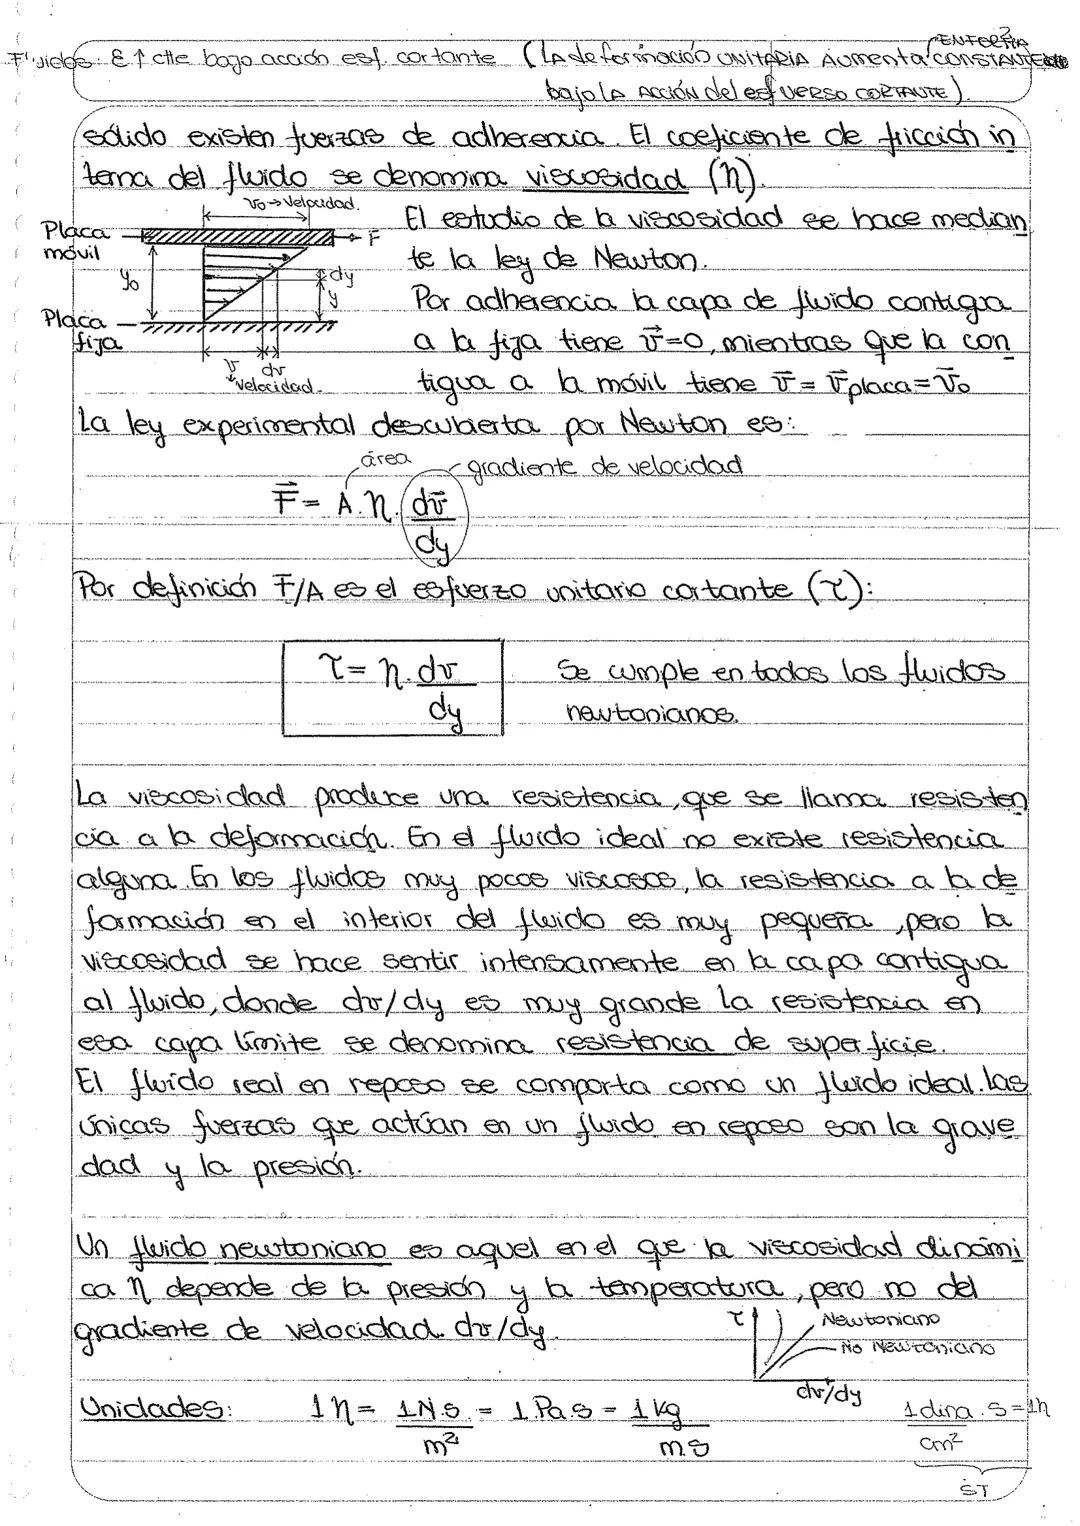 Fluidos: ε ↑ cte bajo acción esf. cortante (LA deformación UNITARIA Aumenta CONSTANTE
EN FORMA
bajo LA ACCIÓN del esfuerzo CORTANTE).
sólido existen fuerzas de adherencia. El coeficiente de fricción in
terna del fluido se denomina viscosidad (η).
v₀→Velocidad.
Placa
móvil
F
y₀
dy
y
Placa
fija
v
dv
velocidad.
El estudio de la viscosidad se hace median
te la ley de Newton.
Por adherencia la capa de fluido contigua
a la fija tiene v⃗=0, mientras que la con
tigua a la móvil tiene v⃗ = v⃗placa = v⃗₀
La ley experimental descubierta por Newton es:
área
gradiente de velocidad
F⃗ = A.η. dv⃗/dy
Por definición F/A es el esfuerzo unitario cortante (τ):
τ = η. dv/dy
Se cumple en todos los fluidos
newtonianos.
La viscosidad produce una resistencia, que se llama resisten
cia a la deformación. En el fluido ideal no existe resistencia
alguna. En los fluidos muy pocos viscosos, la resistencia a la de
formación en el interior del fluido es muy pequeña, pero la
viscosidad se hace sentir intensamente en la capa contigua
al fluido, donde dv/dy es muy grande. La resistencia en
esa capa límite se denomina resistencia de superficie.
El fluido real en reposo se comporta como un fluido ideal. Las
únicas fuerzas que actúan en un fluido en reposo son la grave
dad y la presión.
Un fluido newtoniano es aquel en el que la viscosidad dinámi
ca η depende de la presión y la temperatura, pero no del
gradiente de velocidad dv/dy.
τ
Newtoniano
No Newtoniano
dv/dy
Unidades: 1η = 1N.s/m² = 1 Pa.s = 1 kg/m.s
1 dina.s/cm² = 1η
ST